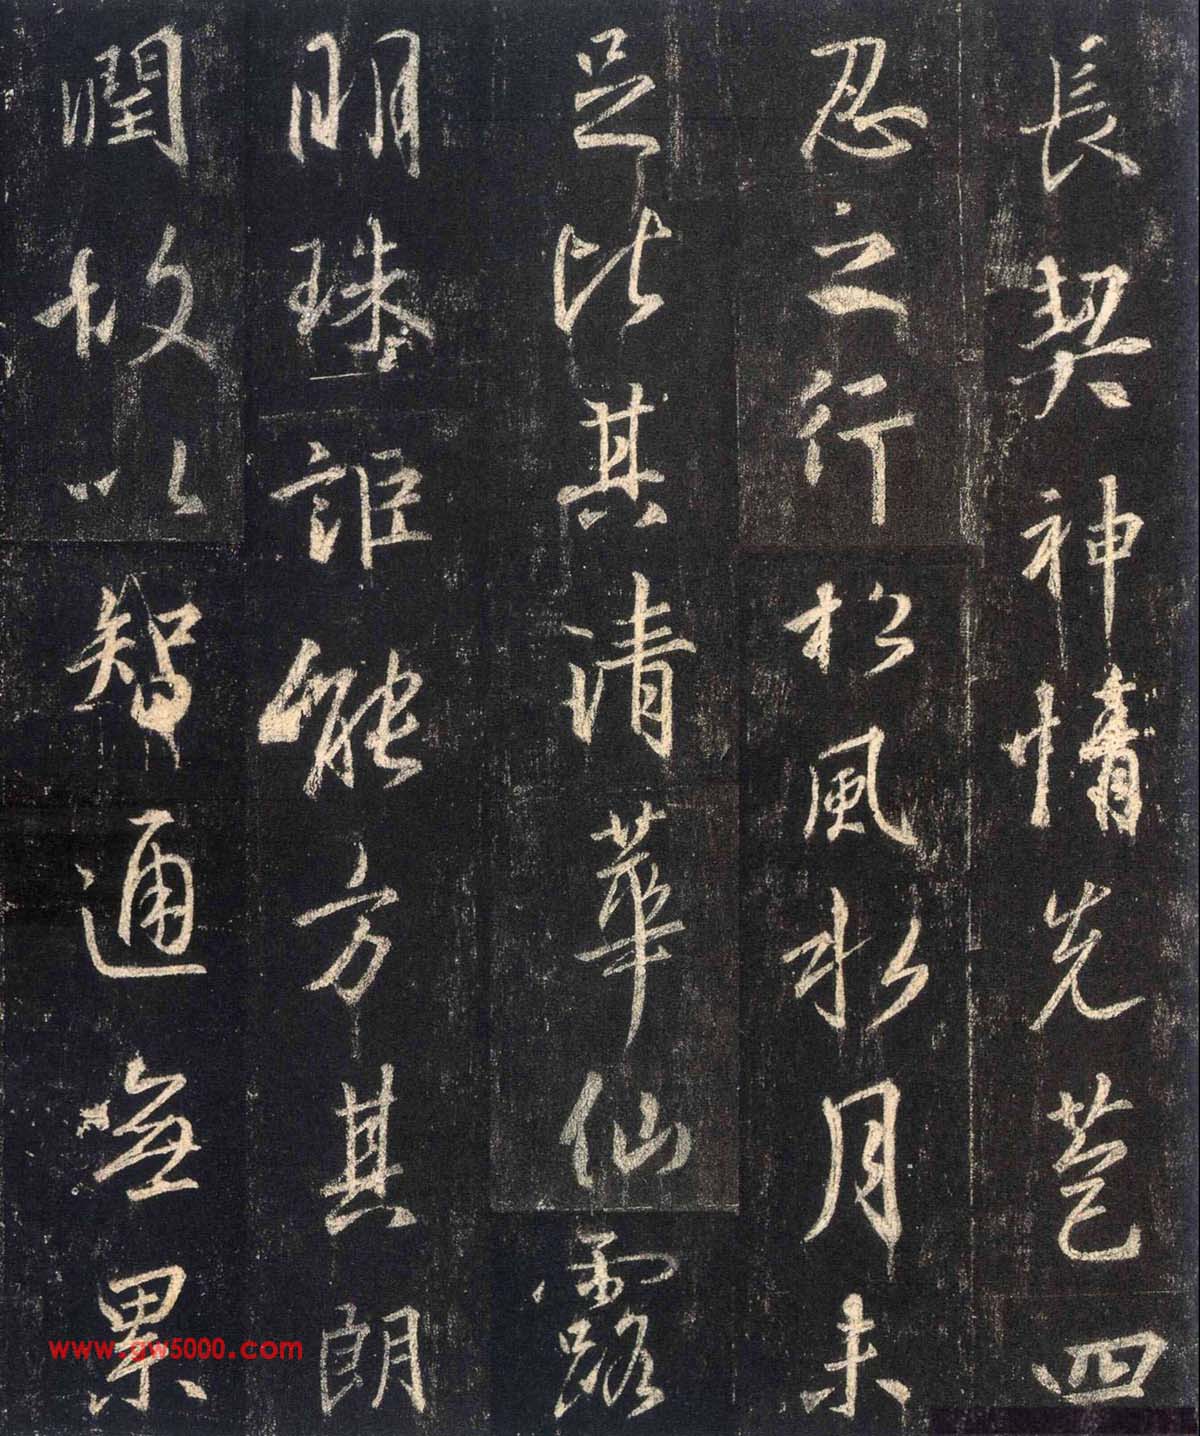 長契神情先苞四
忍之行松風水月未
足比其清華仙露
明珠詎能方其朗
潤故以智通無累
www.gw5000.com